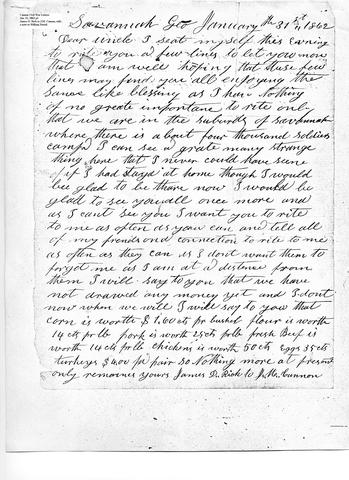 Savannah Geo January th 31 st 1862
Dear uncle I seat myself this evening
to rite you a few lines to let you now
that I am well hoping that these few
lines may find you all enjoying the
same like blessing as I have Nothing
of no greate importance to rite only
that we are in the suburds of savannah
where there is about four thousand soldiers
campd I can see a grate many strange
thing here that I never could have seene
if I had stayd at home though I would
bee glad to be thare now I would be
glad to see you all once more and
as I cant see you I want you to rite
to me as often as your can and tell all
of my frends and connection to rite to me
as often as they can as I dont want them to
forget me as I am at a distence from
them I will say to you that we have
not drawed any money yet and I dont
now when we will I will say to you that
corn is worth $ 1.60 cts pr bushel flour is worth
14 cts pr lb pork is worth 25 cts pr lb fresh Beef is
worth 14 cts pr lb chickens is worth 50 cts Eggs 35 cts
turkeys $ 4.00 pr pair so Nothing more at present
only remaines yours James D. Rich to J. Mc.Cunnon